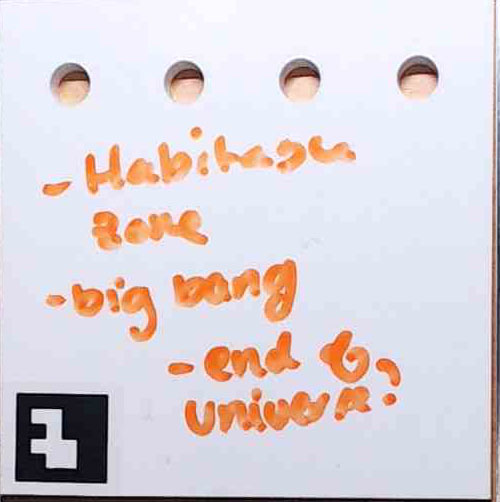 - Habitable
zone
- big bang
- end of
universe?